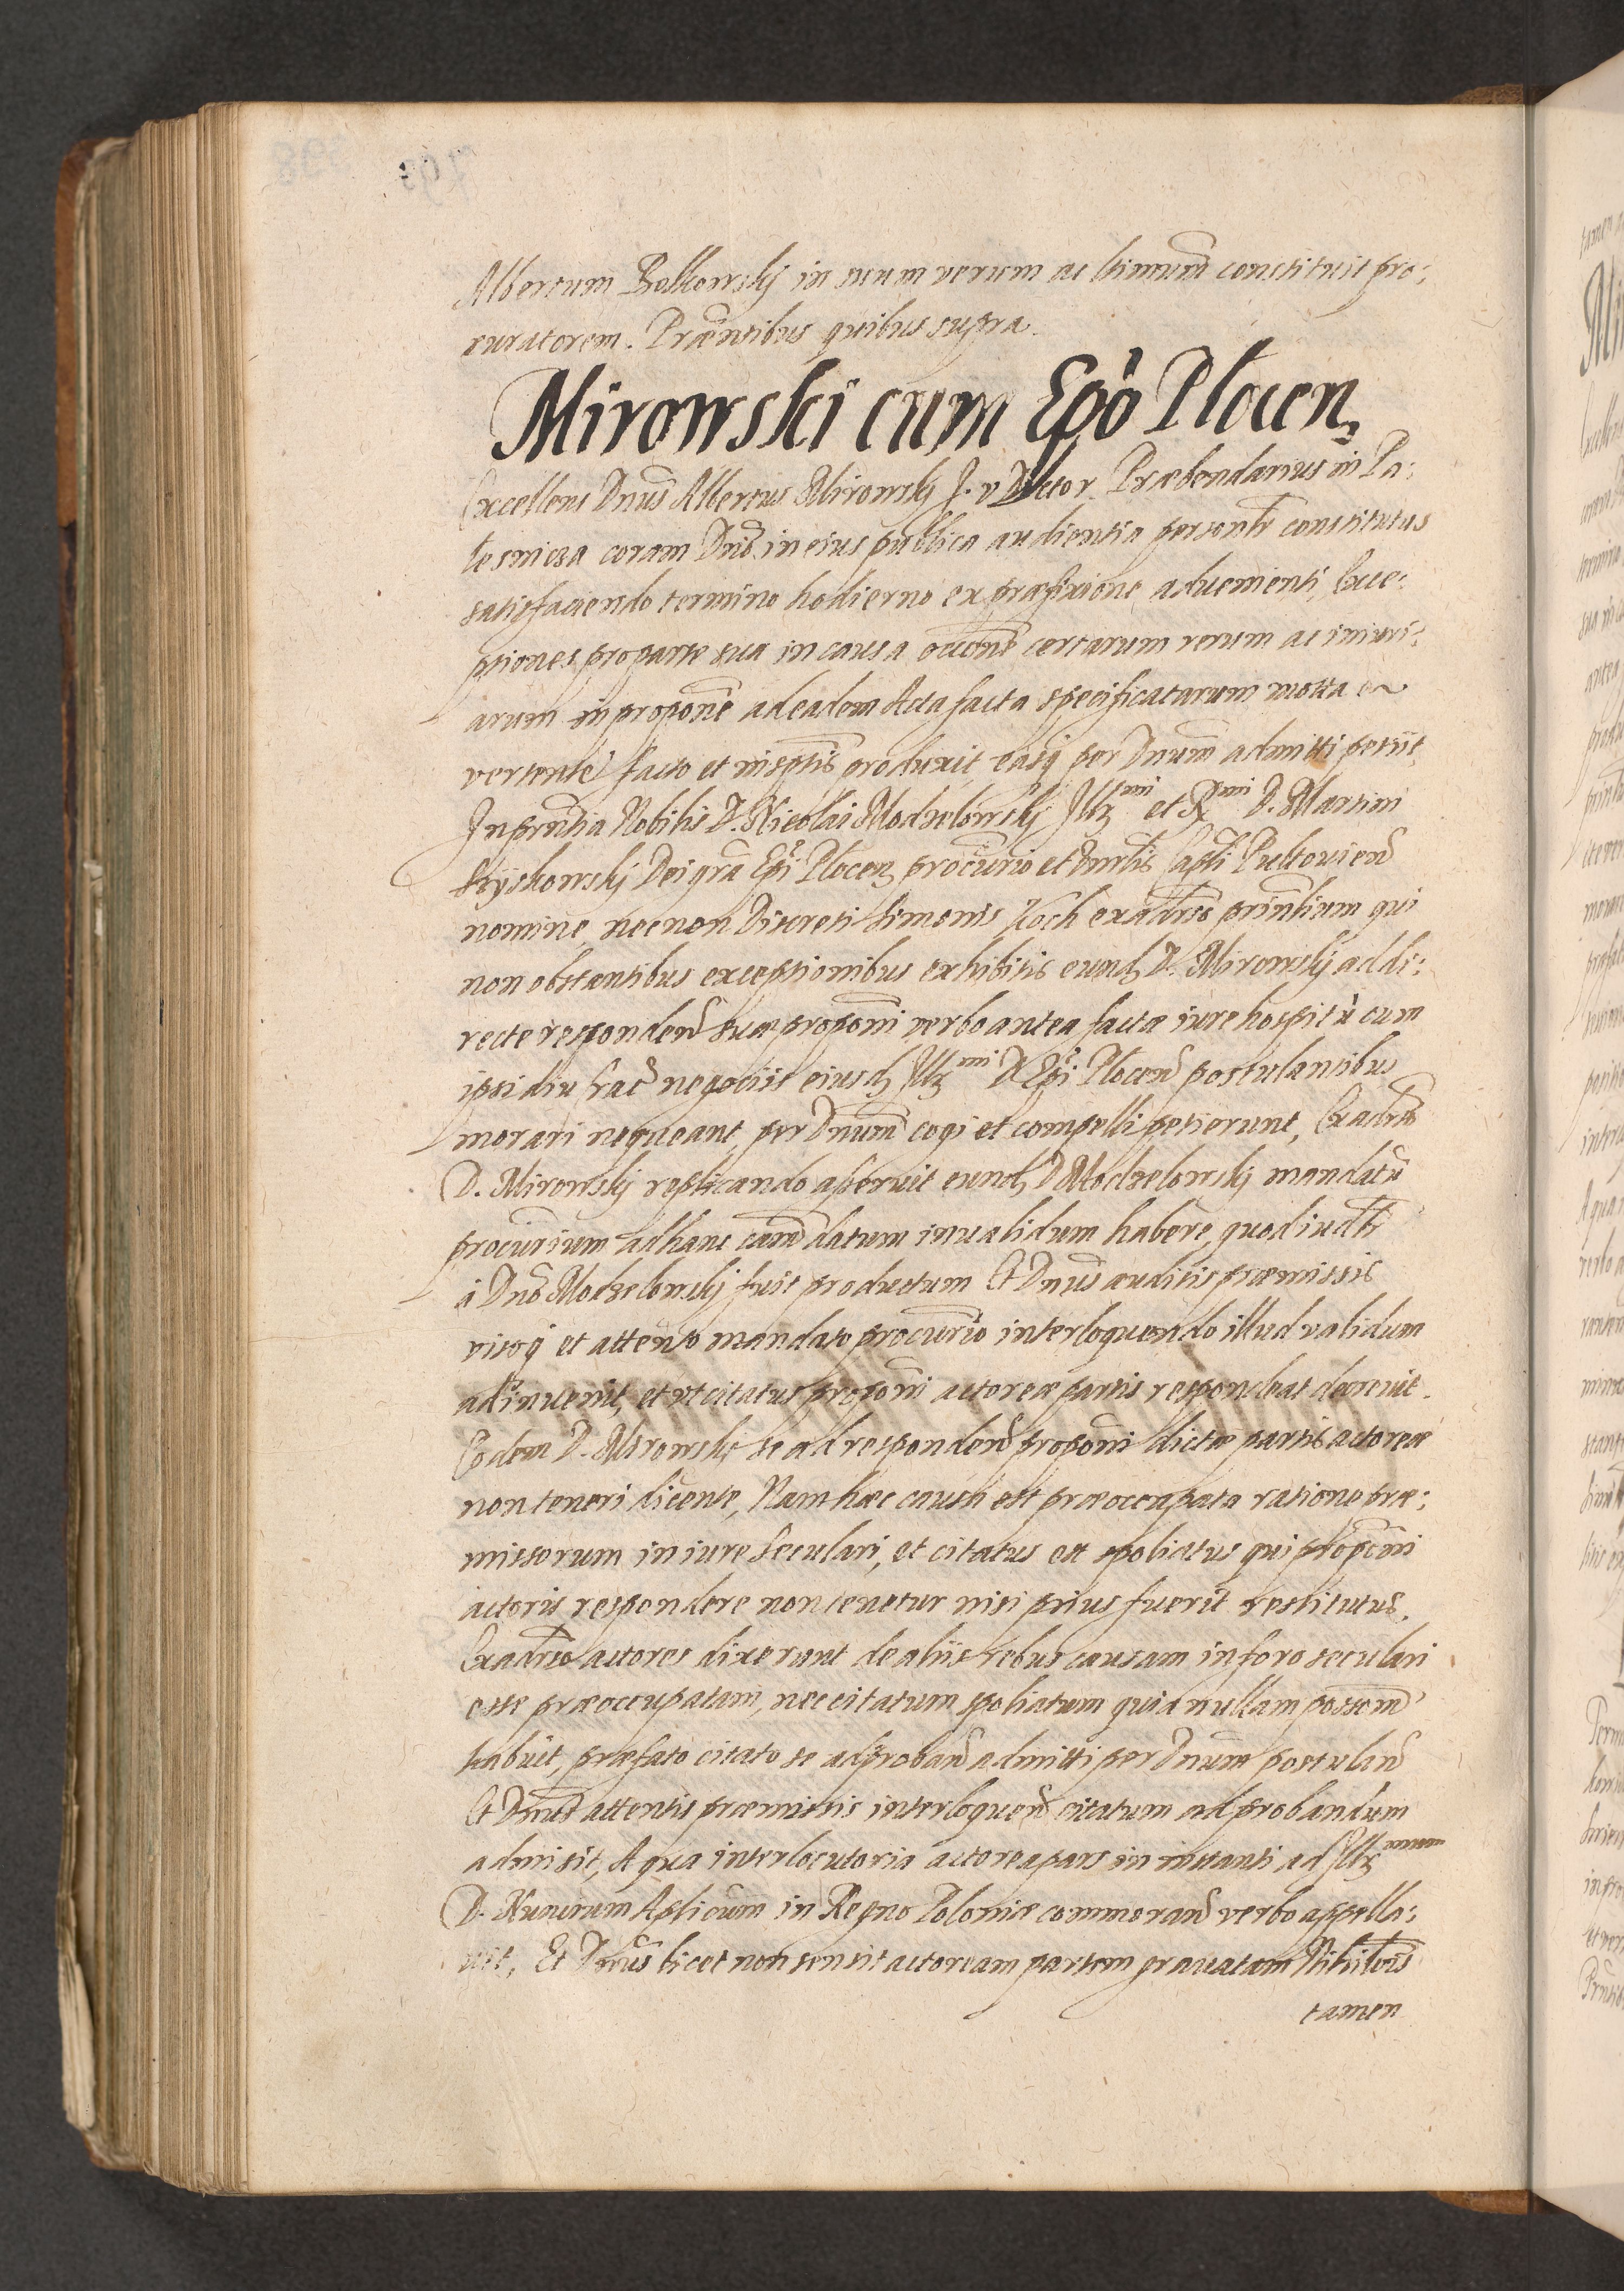 Albertum Bolkowskij in suum verum ac ltimum constituit pro:
curatorem. Præntibus quibus supra.
Mirowski cum Epo Plocen,
Excellens Dnus Albertus Mirowskj J. v Doctor Præbendarius in Pa:
coram Dno in eius publica audientia personlr constitutus
satisfaciendo termino hodierno ex præfixione aduenienti, Exce:
ptiones pro parte sua in causa occone certarum rerum ac iniuri:
arum in propone ad eadem Acta facta specificatarum motta
vertente facto et inscptis produxit, easq per Dnum admitti petiit
In prntia Nobilis D. Nicolai Modzelowskj Illz mi et R mi D. Martini
Szyskowskj Dei gra Epi Plocen, procurio et Capli Pultouien
nomine, necnon Discreti Simonis Koch exaduerso printium qui
non obstantibus exceptionibus exhibitis eund, D. Mirowskj ad di:
recte responden suæ proponi verbo antea factæ iure hospitu cum
ipsi diu hac negociis eiusd, Illz mi D Epi Plocen postulantibus
morari nequeant, per Dnum cogi et compelli petierunt, Exadrso
D. Mirowskj replicando asseruit eund, D Modzelowskj mandatu
procurium ad hanc cam datum inualidum habere, quod
à Dno Modzelowskj fuit productum Et Dnus auditis præmissis
visoq et attento mandato procurio interloquendo illud validum
adinuenit, et vt citatus proponi actoreæ partis respondeat decreuit.
Eodem D. Mirowskj se ad responden proponi dictæ partis actoreæ
non teneri dicente, Nam hæc causa est præoccupata ratione præ:
missorum in iure seculari, et citatus est spoliatus qui proponi
actoris respondere non tenetur nisi prius fuerit restitutus.
Exadrso actores dixerunt de aliis rebus causam in foro seculari
esse præoccupatam, nec citatum spoliatum quia nullam possom
habuit, præfato citato se ad proban admitti per Dnum postulan
Et Dnus attentis præmissis interloquen citatum ad probandum
admisit, A qua interlocutoria actorea pars in instanti ad Illz mum
D. Nuncium Aplicum in Regno Poloniæ commoran verbo appella:
uit, Et Dnus licet non sensit actoream partem grauatam Nihilois
tamen